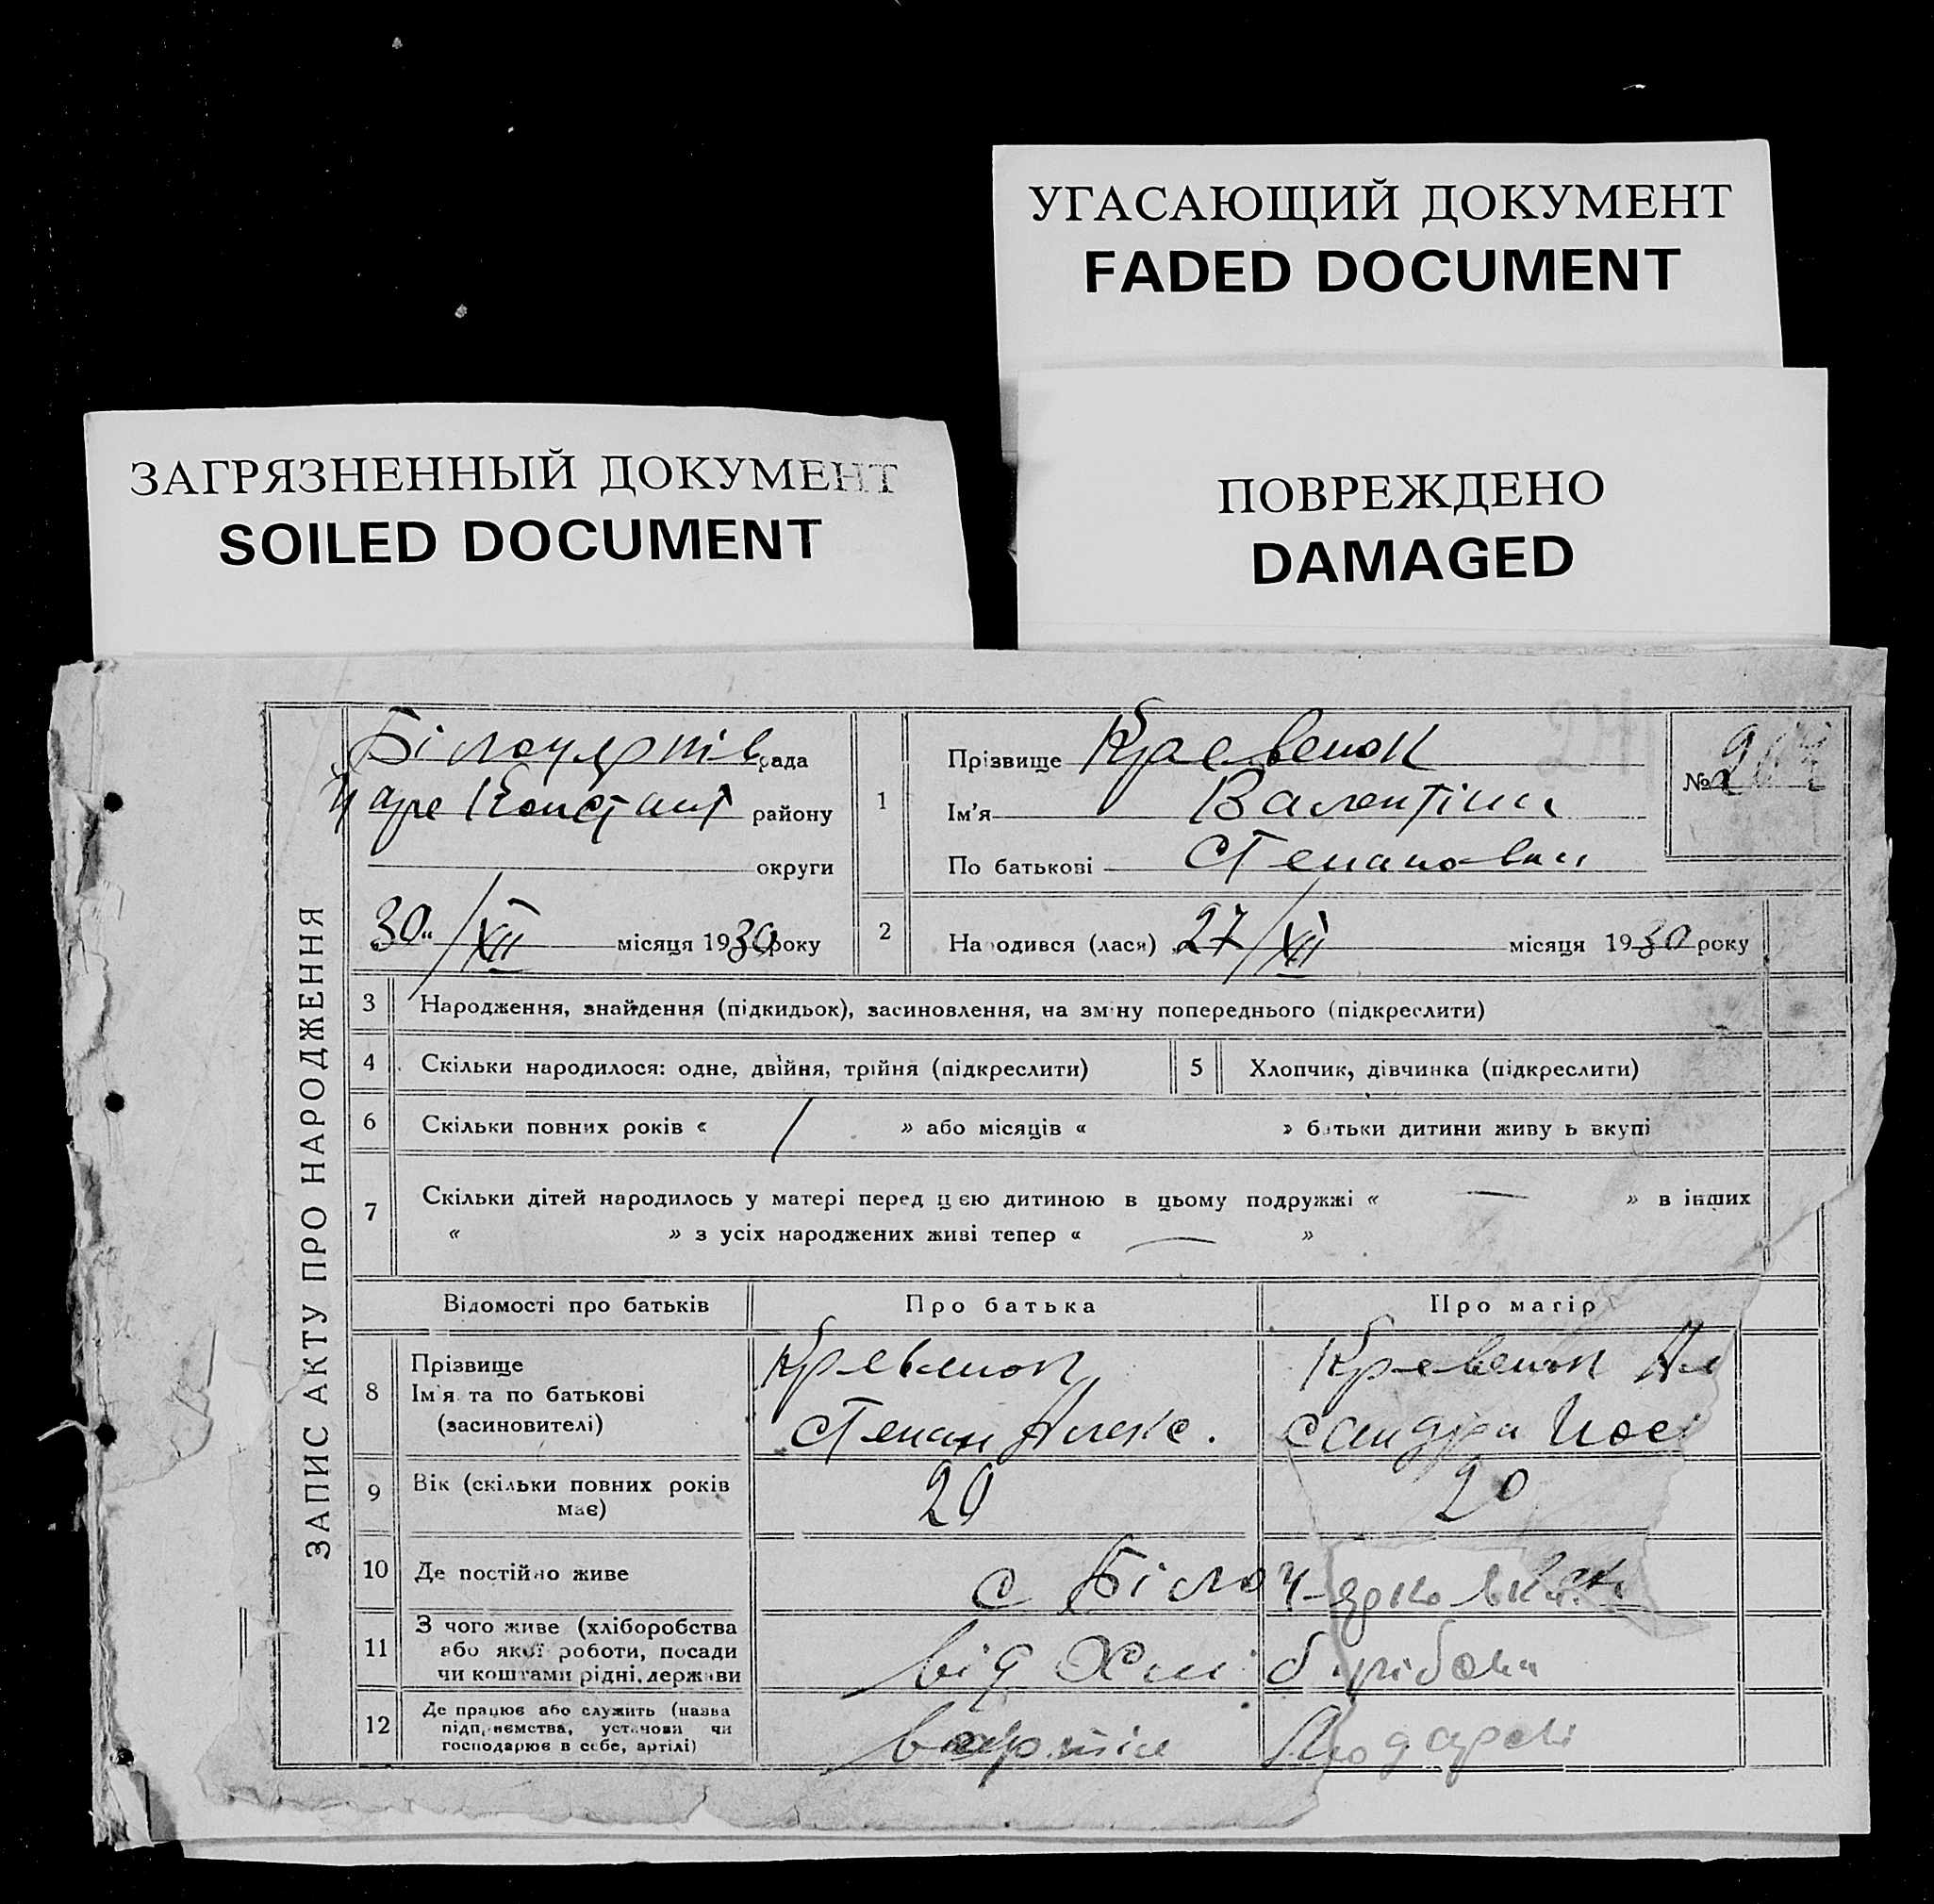 УГАСАЮЩИЙ ДОКУМЕНТ
FADED DOCUMENT
ЗАГРЯЗНЕННЫЙ ДОКУМЕНТ
SOILED DOCUMENT
ПОВРЕЖДЕНО
DAMAGED
ЗАПИС АКТУ ПРО НАРОДЖЕННЯ
рада
району
округи
30 / XII місяця 1930 року
1
Прізвище Кревенок
Ім'я Валентіна
По батькові Степановна
№
2
Народився (лася) 27 / XII місяця 1930 року
3 Народження, знайдення (підкидьок), засиновлення, на зміну попереднього (підкреслити)
4 Скільки народилося: одне, двійня, трійня (підкреслити)
5 Хлопчик, дівчинка (підкреслити)
6 Скільки повних років « / » або місяців « » батьки дитини живуть вкупі
7 Скільки дітей народилось у матері перед цією дитиною в цьому подружжі « — » в інших
« » з усіх народжених живі тепер « — »
Відомості про батьків Про батька Про матір
8 Прізвище
Ім'я та по батькові
(засиновителі)
Кревенок
Степан Алекс.
Кревенок Ал
сандра Иос
9 Вік (скільки повних років
має)
20 20
10 Де постійно живе
с Біло
11 З чого живе (хліборобства
або якої роботи, посади
чи коштами рідні, держави
від
12 Де працює або служить (назва
підприємства, установи чи
господарює в себе, артілі)